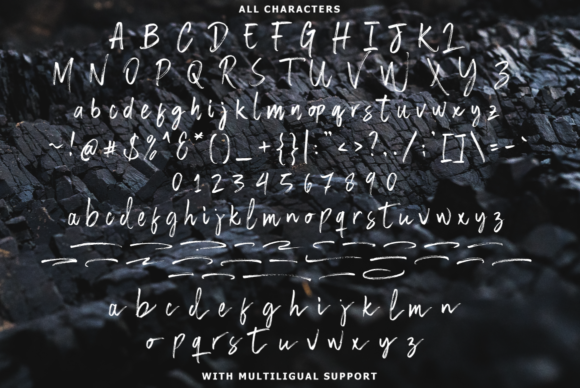 ALL CHARACTERS
A B C D E F G H I J K L
M N O P Q R S T U V W X Y Z
a b c d e f g h i j k l m n o p q r s t u v w x y z
~ ! @ # $ % ^ & * ( ) _ + { } | : " < > ? . , / ; ' [ ] \ = - `
0 1 2 3 4 5 6 7 8 9 0
a b c d e f g h i j k l m n o p q r s t u v w x y z
a b c d e f g h i j k l m n
o p q r s t u v w x y z
WITH MULTILIGUAL SUPPORT